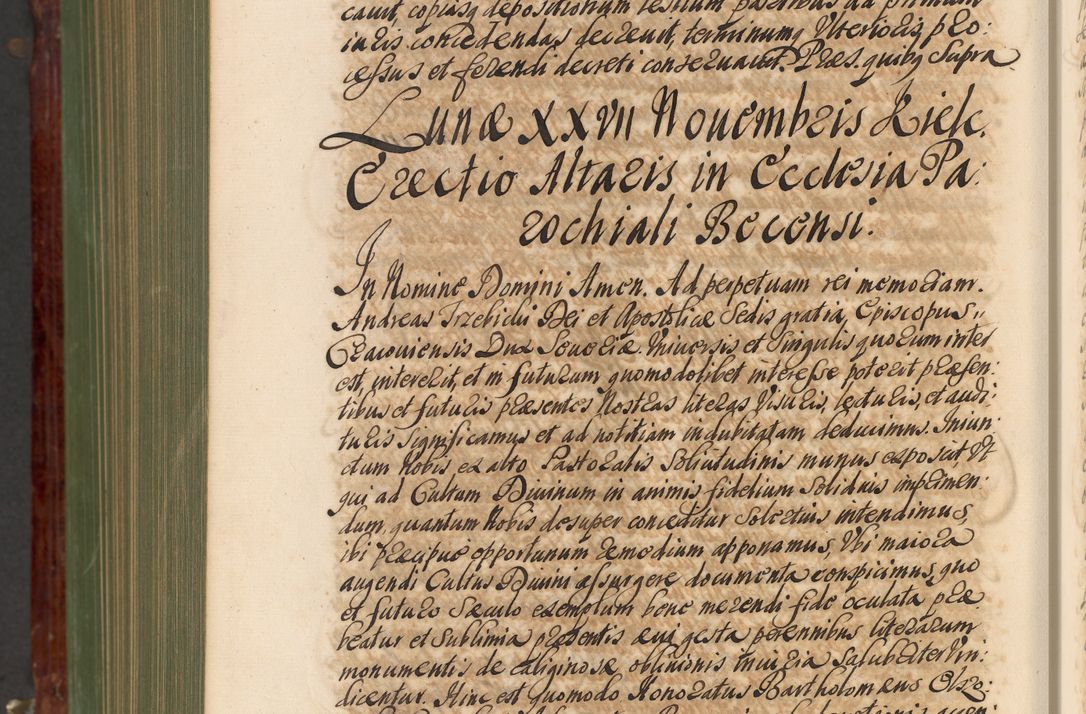 cauit, copiasq depositionum testium partibus ad primam
iuris concedendas decreuit, terminumq Vlterioris, pro:
cessus et ferendi decreti conseruauit. Præs. quibq Supra
Lunæ XXVII Nouembris Kielc.
Erectio Altaris in Ecclesia Pa:
rochiali Becensi.
In Nomine Domini Amen. Ad perpetuam rei memoriam.
Andreas Trzebicki Dei et Apostolicæ Sedis gratia, Episcopus,,
Cracouiensis Dux Seueriæ. Vniuersis et Singulis quorum inter
est, intererit, et in futurum quomodolibet interesse poterit præsen:
tibus et futuris præsentes Nostras literas Visuris, lecturis, et audi:
turis significamus et ad notitiam indubitatam deducimus. Iniun:
ctum Nobis ex alto Pastoralis Solicitudinis munus exposcit, Vt
qui ad Cultum Diuinum in animis fidelium Solidius imprimen:
dum, quantum Nobis desuper conceditur Solertius intendimus,
ibi præcipue opportunum remedium apponamus, Vbi maiora
augendi Cultus Diuini assurgere documenta conspicimus, quo
et futuro Sæculo exemplum bene merendi fide oculata præ
beatur et Sublimia præsentis æui gesta perennibus literarum
monumentis de caliginosæ obliuionis iniuria Salubriter Vin:
dicentur. Hinc est Quomodo Honoratus Bartholomæus Olszo: